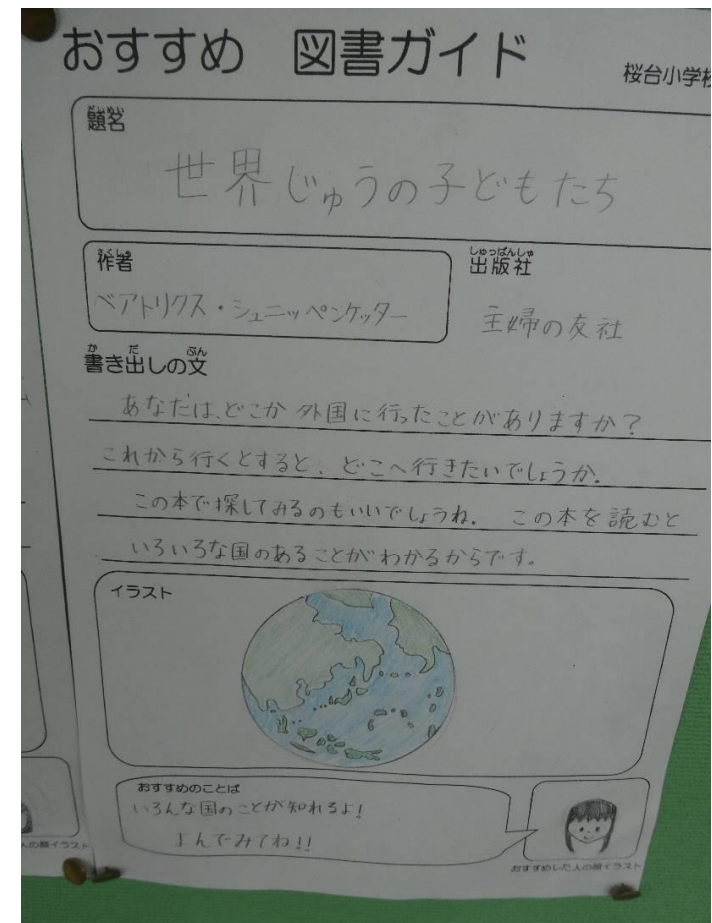 おすすめ 図書ガイド
桜台小学校
題名
世界じゅうの子どもたち
作者
ベアトリクス・シュニッペンケッター
出版社
しゅっぱんしゃ
主婦の友社
書き出しの文
か だ ぶん
あなたは、どこか外国に行ったことがありますか?
これから行くとすると、どこへ行きたいでしょうか。
この本で探してみるのもいいでしょうね。 この本を読むと
いろいろな国のあることがわかるからです。
イラスト
おすすめのことば
いろんな国のことが知れるよ!
よんでみてね!!
おすすめした人の顔イラスト
人の顔イラスト